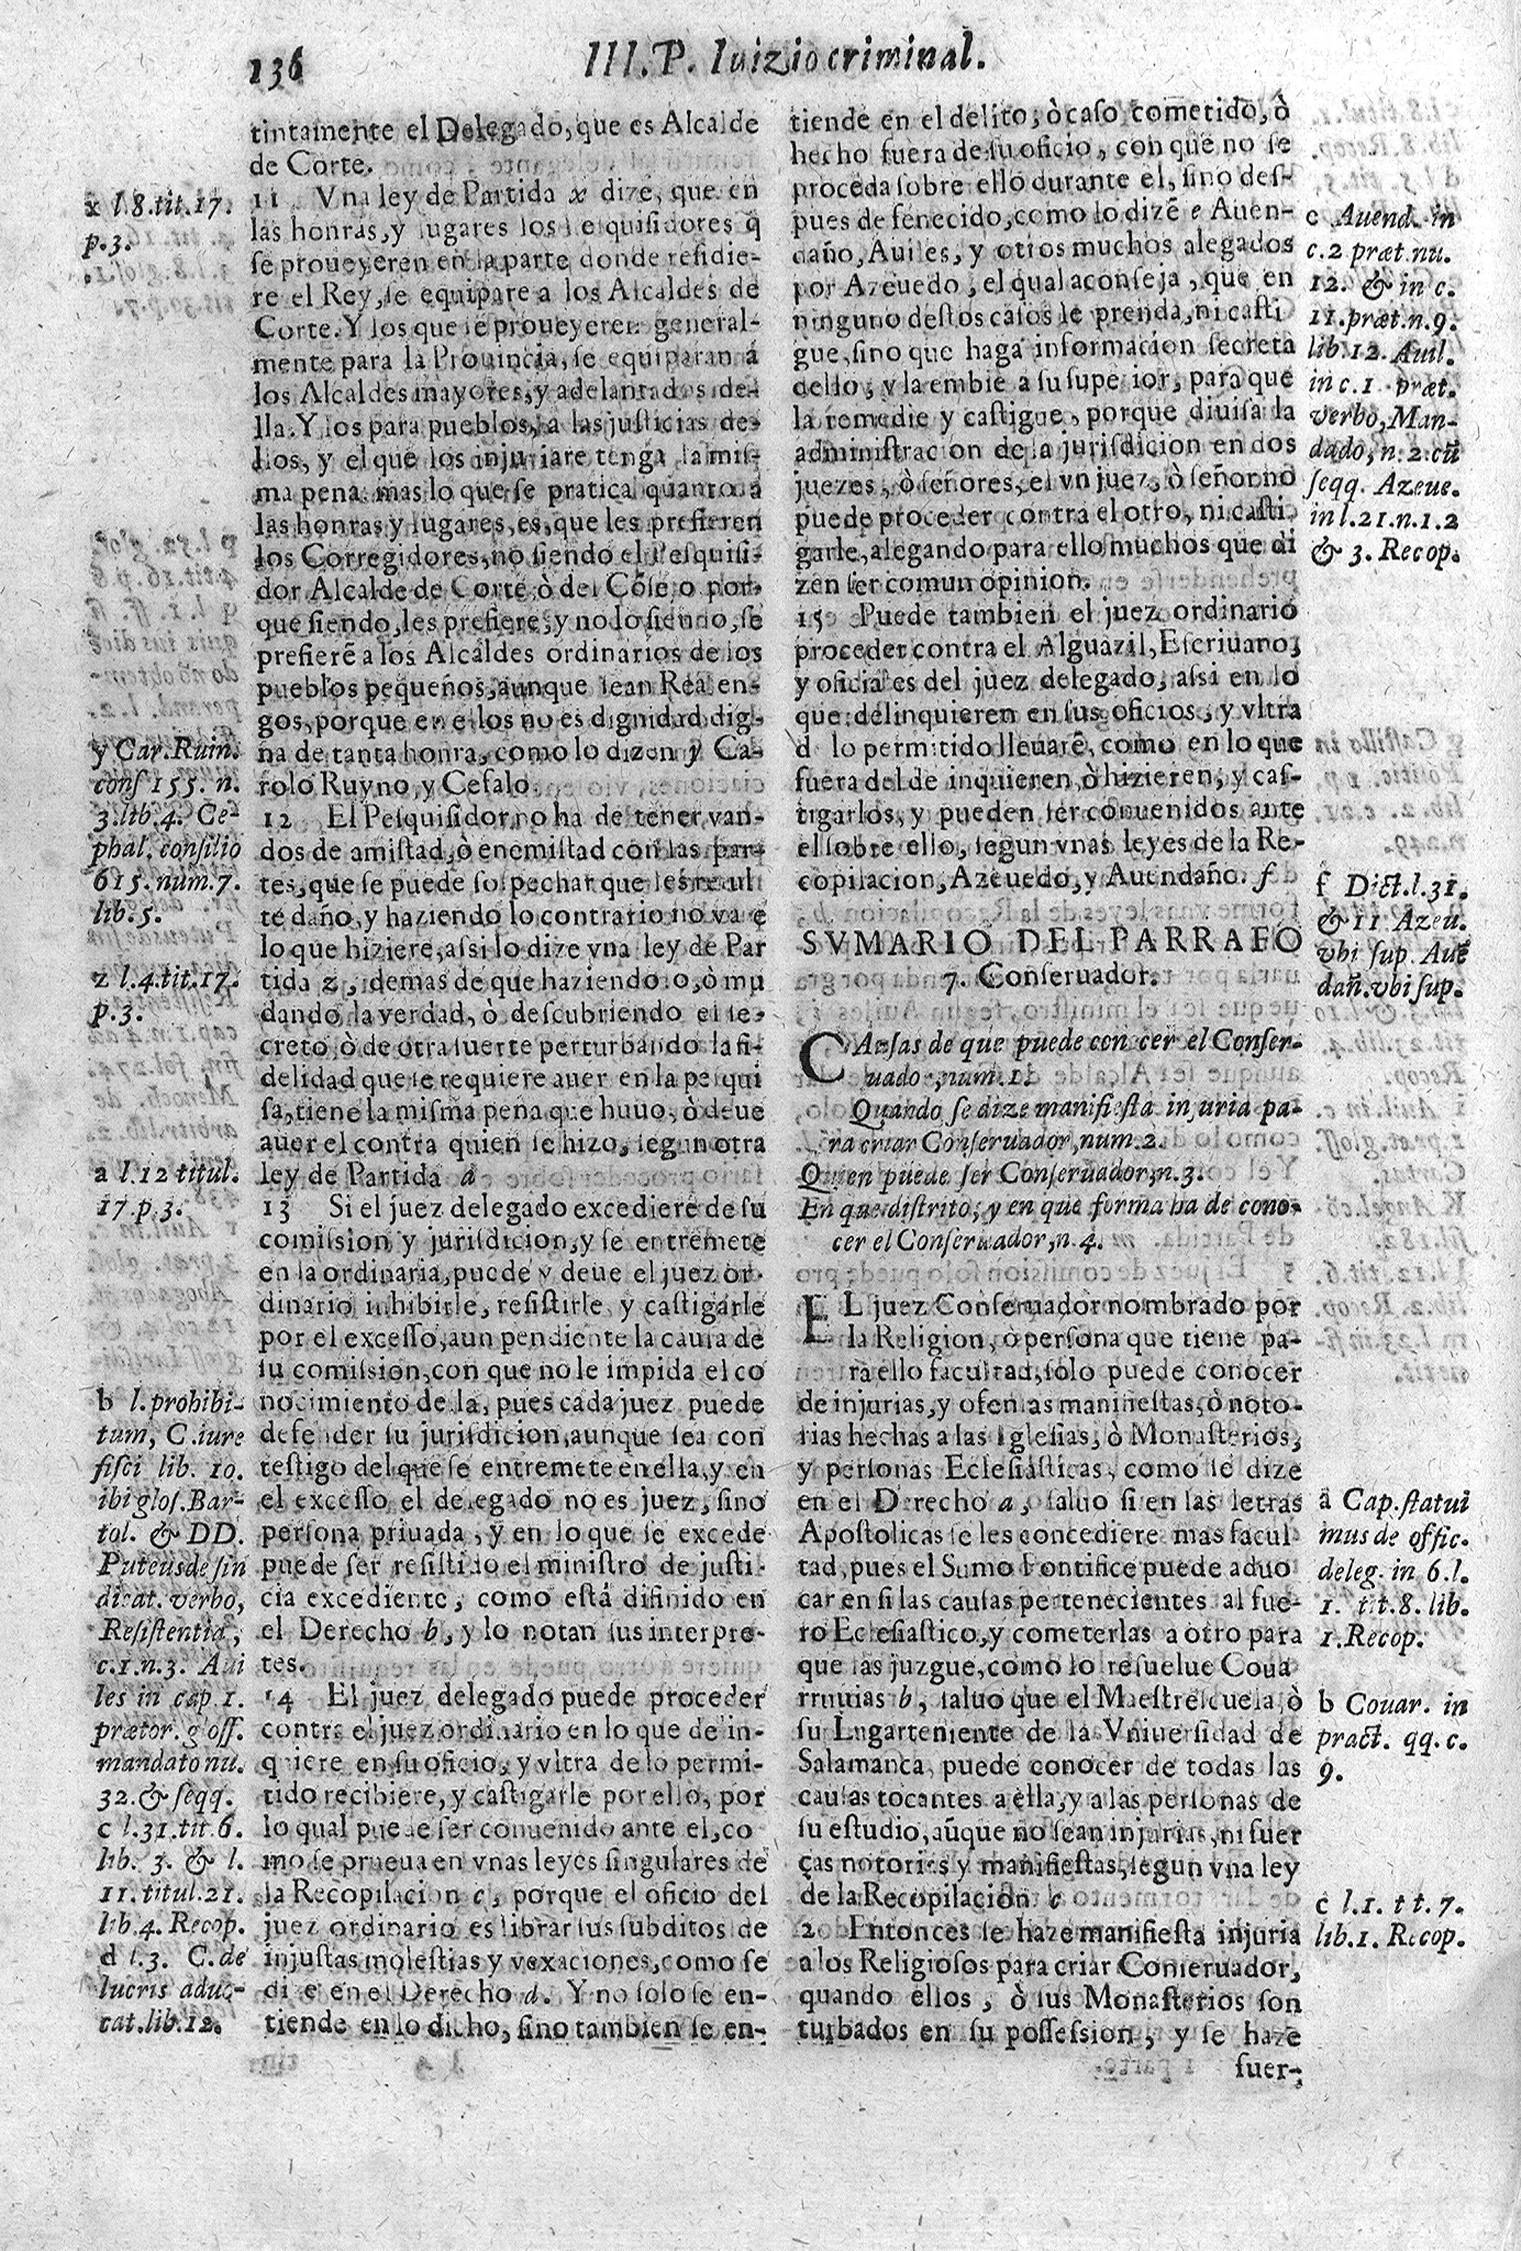 136
III. P. Iuizio criminal.
tintamente el Delegado, que es Alcalde
de Corte.
11 Vna ley de Partida x dize, que en
las honras, y lugares los Pesquisidores q̃
se proueyeren en la parte donde residie-
re el Rey, se equipare a los Alcaldes de
Corte. Y los que se proueyeren general-
mente para la Prouincia, se equiparan á
los Alcaldes mayores, y adelantados de-
lla. Y los para pueblos, a las justicias de-
llos, y el que los injuriare tenga la mis-
ma pena: mas lo que se pratica quanto a
las honras y lugares, es, que les prefieren
los Corregidores, no siendo el Pesquisi-
dor Alcalde de Corte, ò del Cōsejo por-
que siendo, les prefiere, y no lo siendo, se
prefierē a los Alcaldes ordinarios de los
pueblos pequeños, aunque sean Realen-
gos, porque en ellos no es dignidad dig-
na de tanta honra, como lo dizen y Ca-
rolo Ruyno, y Cefalo.
12 El Pesquisidor no ha de tener van-
dos de amistad, ò enemistad con las par-
tes, que se puede sospechar que les resul
te daño, y haziendo lo contrario no vale
lo que hiziere, assi lo dize vna ley de Par
tida z, demas de que haziendolo, ò mu
dando la verdad, ò descubriendo el se-
creto, ò de otra suerte perturbando la fi-
delidad que se requiere auer en la pesqui
sa, tiene la misma pena que huuo, ò deue
auer el contra quien se hizo, segun otra
ley de Partida a
13 Si el juez delegado excediere de su
comission y jurisdicion, y se entremete
en la ordinaria, puede y deue el juez or-
dinario inhibirle, resistirle y castigarle
por el excesso, aun pendiente la causa de
su comission, con que no le impida el co
nocimiento della, pues cada juez puede
defender su jurisdicion, aunque sea con
testigo del que se entremete en ella, y en
el excesso el delegado no es juez, sino
persona priuada, y en lo que se excede
puede ser resistido el ministro de justi-
cia excediente, como está difinido en
el Derecho b, y lo notan sus interpre-
tes.
14 El juez delegado puede proceder
contra el juez ordinario en lo que delin-
quiere en su oficio, y vltra de lo permi-
tido recibiere, y castigarle por ello, por
lo qual puede ser conuenido ante el, co
mo se prueua en vnas leyes singulares de
la Recopilacion c, porque el oficio del
juez ordinario es librar sus subditos de
injustas molestias y vexaciones, como se
dize en el Derecho d. Y no solo se en-
tiende en lo dicho, sino tambien se en-
x l.8.tit.17.
p.3.
y Car. Ruin.
cons 155. n.
3. lib. 4. Ce-
phal. consilio
615. num. 7.
lib. 5.
z l.4.tit.17.
p.3.
a l.12 titul.
17.p.3.
b l. prohibi-
tum, C. iure
fisci lib. 10.
ibi glos. Bar-
tol. & DD.
Puteus de sin
dicat. verbo,
Resistentia,
c.1.n.3. Aui
les in cap 1.
prætor. gloss.
mandato nu.
32. & seqq.
c l.31.tit.6.
lib. 3. & l.
11. titul. 21.
lib.4. Recop.
d l.3. C. de
lucris aduo-
cat. lib. 12.
tiende en el delito, ò caso cometido, ò
hecho fuera de su oficio, con que no se
proceda sobre ello durante el, sino des-
pues de fenecido, como lo dizē e Auen-
daño, Auiles, y otros muchos alegados
por Azeuedo, el qual aconseja, que en
ninguno destos casos le prenda, ni casti
gue, sino que haga informacion secreta
dello, y la embie a su superior, para que
la remedie y castigue, porque diuisa la
administracion de la jurisdicion en dos
juezes, ò señores, el vn juez, ò señor no
puede proceder contra el otro, ni casti
garle, alegando para ello muchos que di
zen ser comun opinion.
15 Puede tambien el juez ordinario
proceder contra el Alguazil, Escriuano,
y oficiales del juez delegado, assi en lo
que delinquieren en sus oficios, y vltra
d lo permitido lleuarē, como en lo que
fuera del delinquieren, ò hizieren, y cas-
tigarlos, y pueden ser conuenidos ante
el sobre ello, segun vnas leyes de la Re-
copilacion, Azeuedo, y Auendaño. f
SVMARIO DEL PARRAFO
7. Conseruador.
CAusas de que puede conocer el Conser-
uador, num. 1.
Quando se dize manifiesta injuria pa-
ra criar Conseruador, num. 2.
Quien puede ser Conseruador, n. 3.
En que distrito, y en que forma ha de cono-
cer el Conseruador, n. 4.
EL juez Conseruador nombrado por
la Religion, ò persona que tiene pa-
ra ello facultad, solo puede conocer
de injurias, y ofensas manifiestas, ò noto-
rias hechas a las Iglesias, ò Monasterios,
y personas Eclesiasticas, como se dize
en el Derecho a, saluo si en las letras
Apostolicas se les concediere mas facul
tad, pues el Sumo Pontifice puede aduo
car en si las causas pertenecientes al fue-
ro Eclesiastico, y cometerlas a otro para
que las juzgue, como lo resuelue Coua
rruuias b, saluo que el Maestrescuela, ò
su Lugarteniente de la Vniuersidad de
Salamanca, puede conocer de todas las
causas tocantes a ella, y a las personas de
su estudio, aũque no sean injurias, ni fuer
ças notorias y manifiestas, segun vna ley
de la Recopilacion c
2 Entonces se haze manifiesta injuria
a los Religiosos para criar Conseruador,
quando ellos, ò sus Monasterios son
turbados en su possession, y se haze
fuer-
e Auend. in
c.2 præt. nu.
12. & in c.
11. præt. n.9.
lib. 12. Auil.
in c.1 præt.
verbo, Man-
dado, n. 2. cũ
seqq. Azeue.
in l.21.n.1.2
& 3. Recop.
f Dict. l. 31.
& 11 Azeu.
vbi sup. Auẽ
dañ. vbi sup.
a Cap. statui
mus de offic.
deleg. in 6. l.
1. tit. 8. lib.
1. Recop.
b Couar. in
pract. qq. c.
9.
c l.1. tit. 7.
lib.1. Recop.